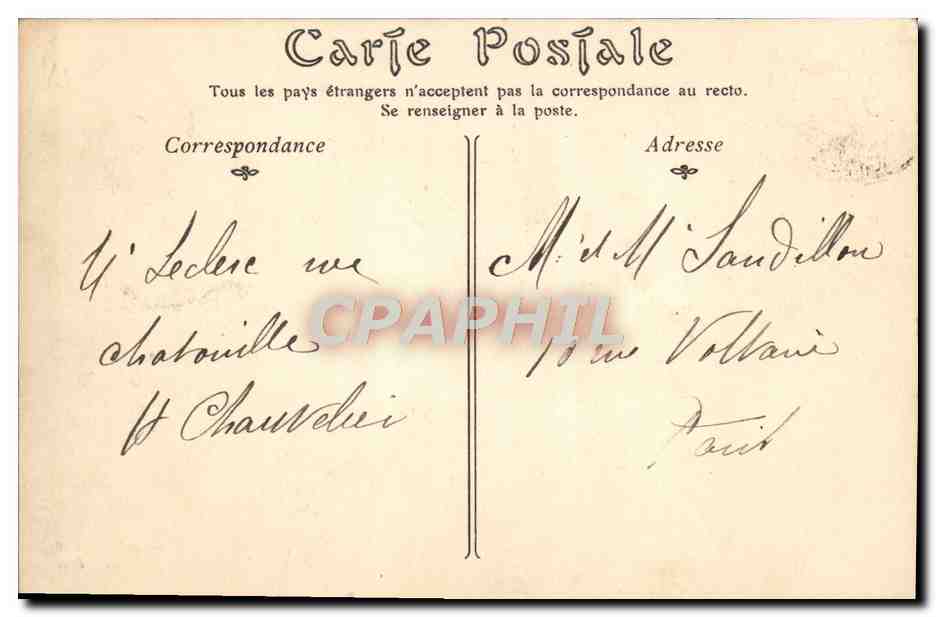 Carte Postale
Tous les pays étrangers n'acceptent pas la correspondance au recto.
Se renseigner à la poste.
Correspondance
Adresse
Leclerc rue
chatouville
M. et Mᵉ Sandillon
rue Voltaire
Paris
CPAPHIL